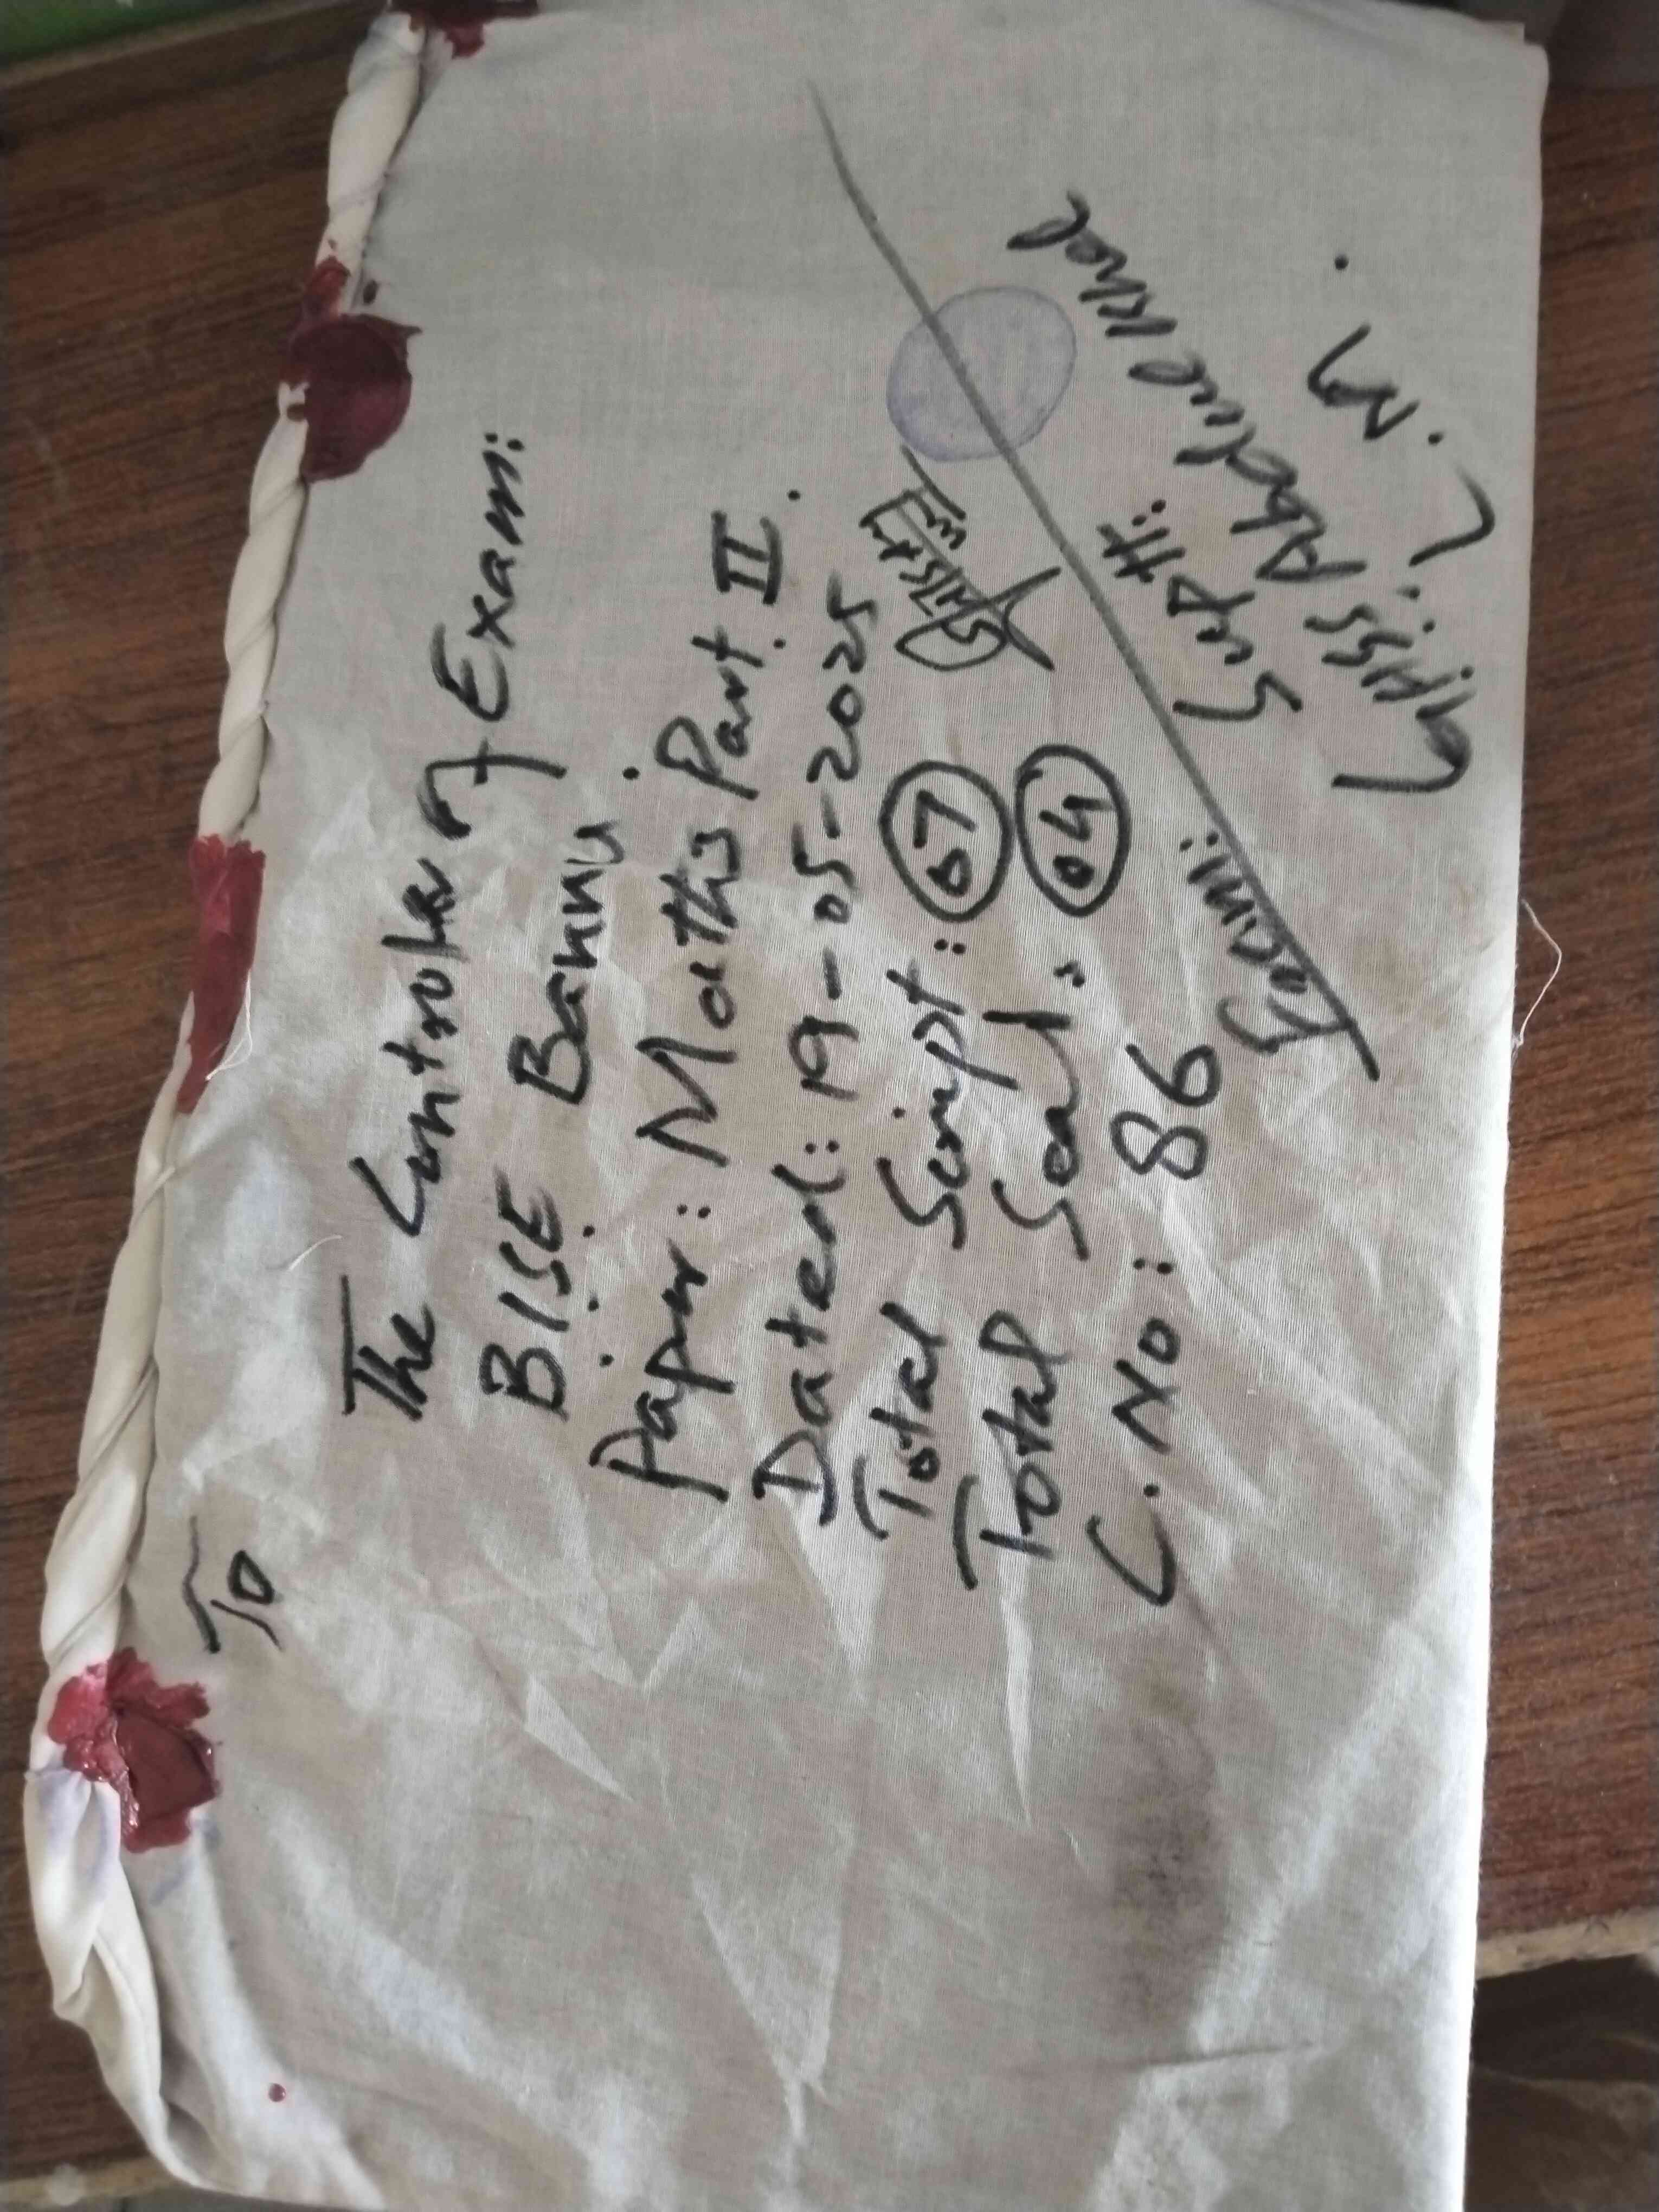 To
The Controller of Exam:
BISE Bannu.
Paper: Maths Part II.
Dated: 19-05-2025
Total Script: 07
Total Seal: 04
C.No: 86
From:
Suptt:
GHSS Abdul Khel
L.M.